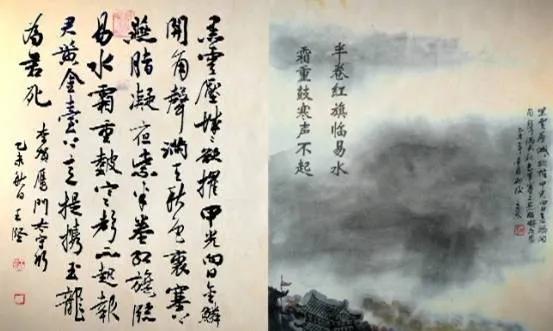 黑雲壓城欲摧甲光向日金鱗
開角聲滿天秋色裏塞上
燕脂凝夜紫半卷红旗臨
易水霜重鼓寒聲不起報
君黄金臺上意提携玉龍
為君死
李賀雁門太守行
乙未秋日王
半卷红旗临易水
霜重鼓寒声不起